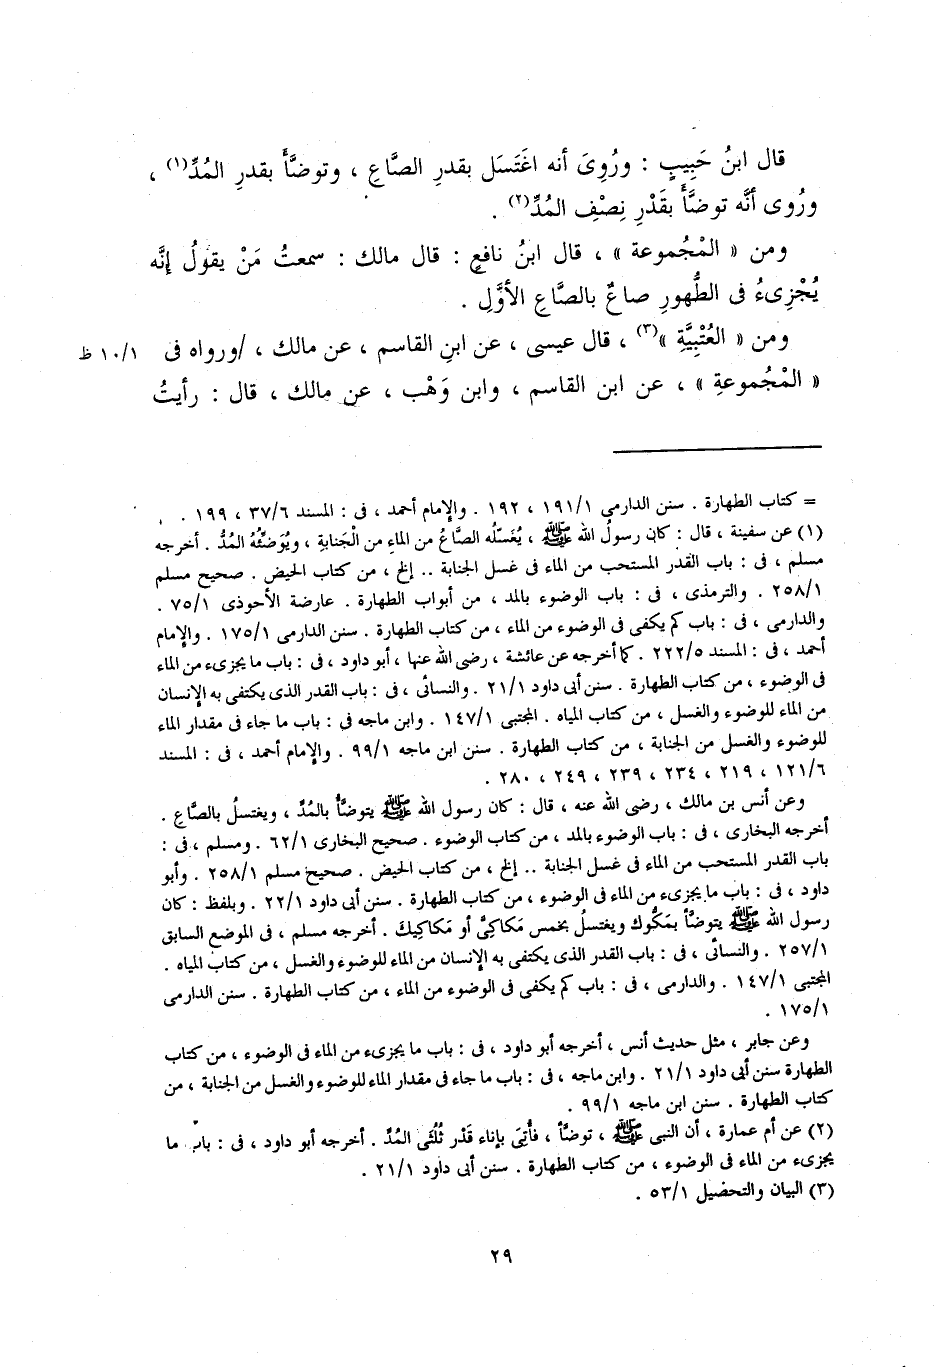 قال ابنُ حَبِيبٍ : ورُوِىَ أنه اغَتَسَل بقدرِ الصَّاعِ ، وتوضَّأَ بقدرِ المُدِّ(١) ،
ورُوى أنَّه توضَّأَ بقَدْرِ نِصْفِ المُدِّ(٢) .
ومن « الْمَجْموعة » ، قال ابنُ نافعٍ : قال مالك : سمعتُ مَنْ يقولُ إنَّه
يُجْزِىءُ فى الطُّهورِ صاعٌ بالصَّاعِ الأوَّلِ .
ومن « العُتْبِيَّةِ »(٣) ، قال عيسى ، عن ابنِ القاسم ، عن مالك ، /ورواه فى ١٠/١ ظ
« الْمَجْموعةِ » ، عن ابن القاسم ، وابن وَهْب ، عن مالك ، قال : رأيتُ
= كتاب الطهارة . سنن الدارمى ١٩١/١ ، ١٩٢ . والإمام أحمد ، فى : المسند ٣٧/٦ ، ١٩٩ .
(١) عن سفينة ، قال : كان رسولُ الله ﷺ ، يُغَسِّلُه الصَّاعُ من الماءِ من الْجَنابةِ ، ويُوَضِّئُهُ المُدُّ . أخرجه
مسلم ، فى : باب القدر المستحب من الماء فى غسل الجنابة .. إلخ ، من كتاب الحيض . صحيح مسلم
٢٥٨/١ . والترمذى ، فى : باب الوضوء بالمد ، من أبواب الطهارة . عارضة الأحوذى ٧٥/١ .
والدارمى ، فى : باب كم يكفى فى الوضوء من الماء ، من كتاب الطهارة . سنن الدارمى ١٧٥/١ . والإمام
أحمد ، فى : المسند ٢٢٢/٥ . كما أخرجه عن عائشة ، رضى الله عنها ، أبو داود ، فى : باب ما يجزىء من الماء
فى الوضوء ، من كتاب الطهارة . سنن أبى داود ٢١/١ . والنسائى ، فى : باب القدر الذى يكتفى به الإنسان
من الماء للوضوء والغسل ، من كتاب المياه . المجتبى ١٤٧/١ . وابن ماجه فى : باب ما جاء فى مقدار الماء
للوضوء والغسل من الجنابة ، من كتاب الطهارة . سنن ابن ماجه ٩٩/١ . والإمام أحمد ، فى : المسند
١٢١/٦ ، ٢١٩ ، ٢٣٤ ، ٢٣٩ ، ٢٤٩ ، ٢٨٠ .
وعن أنس بن مالك ، رضى الله عنه ، قال : كان رسول الله ﷺ يتوضَّأُ بالمُدِّ ، ويغتسلُ بالصَّاعِ .
أخرجه البخارى ، فى : باب الوضوء بالمد ، من كتاب الوضوء . صحيح البخارى ٦٢/١ . ومسلم ، فى :
باب القدر المستحب من الماء فى غسل الجنابة .. إلخ ، من كتاب الحيض . صحيح مسلم ٢٥٨/١ . وأبو
داود ، فى : باب ما يجزىء من الماء فى الوضوء ، من كتاب الطهارة . سنن أبى داود ٢٢/١ . وبلفظ : كان
رسول الله ﷺ يتوضَّأُ بمَكُّوك ويغتسلُ بخمس مَكاكِىَّ أو مَكاكِيكَ . أخرجه مسلم ، فى الموضع السابق
٢٥٧/١ . والنسائى ، فى : باب القدر الذى يكتفى به الإنسان من الماء للوضوء والغسل ، من كتاب المياه .
المجتبى ١٤٧/١ . والدارمى ، فى : باب كم يكفى فى الوضوء من الماء ، من كتاب الطهارة . سنن الدارمى
١٧٥/١ .
وعن جابر ، مثل حديث أنس ، أخرجه أبو داود ، فى : باب ما يجزىء من الماء فى الوضوء ، من كتاب
الطهارة سنن أبى داود ٢١/١ . وابن ماجه ، فى : باب ما جاء فى مقدار الماء للوضوء والغسل من الجنابة ، من
كتاب الطهارة . سنن ابن ماجه ٩٩/١ .
(٢) عن أم عمارة ، أن النبى ﷺ ، توضَّأ ، فأُتِىَ بإناء قَدْر ثُلُثَىِ المُدِّ . أخرجه أبو داود ، فى : باب ما
يجزىء من الماء فى الوضوء ، من كتاب الطهارة . سنن أبى داود ٢١/١ .
(٣) البيان والتحصيل ٥٣/١ .
٢٩